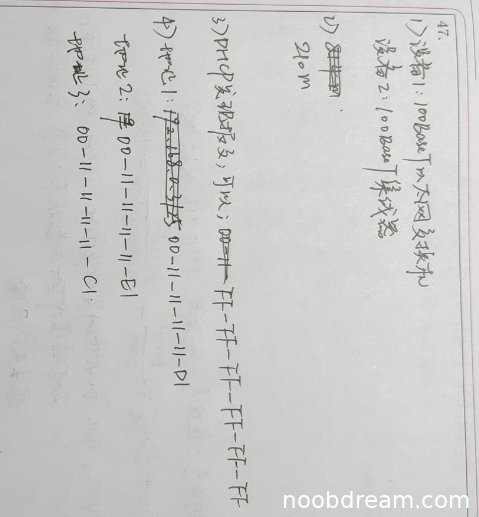 47.
1) 设备1: 100BaseT以太网交换机
设备2: 100BaseT集线器
2)
210m
3) DHCP发现报文; 可以; FF-FF-FF-FF-FF-FF
4) 00-11-11-11-11-D1
2: 00-11-11-11-11-E1
3: 00-11-11-11-11-C1.
noobdream.com